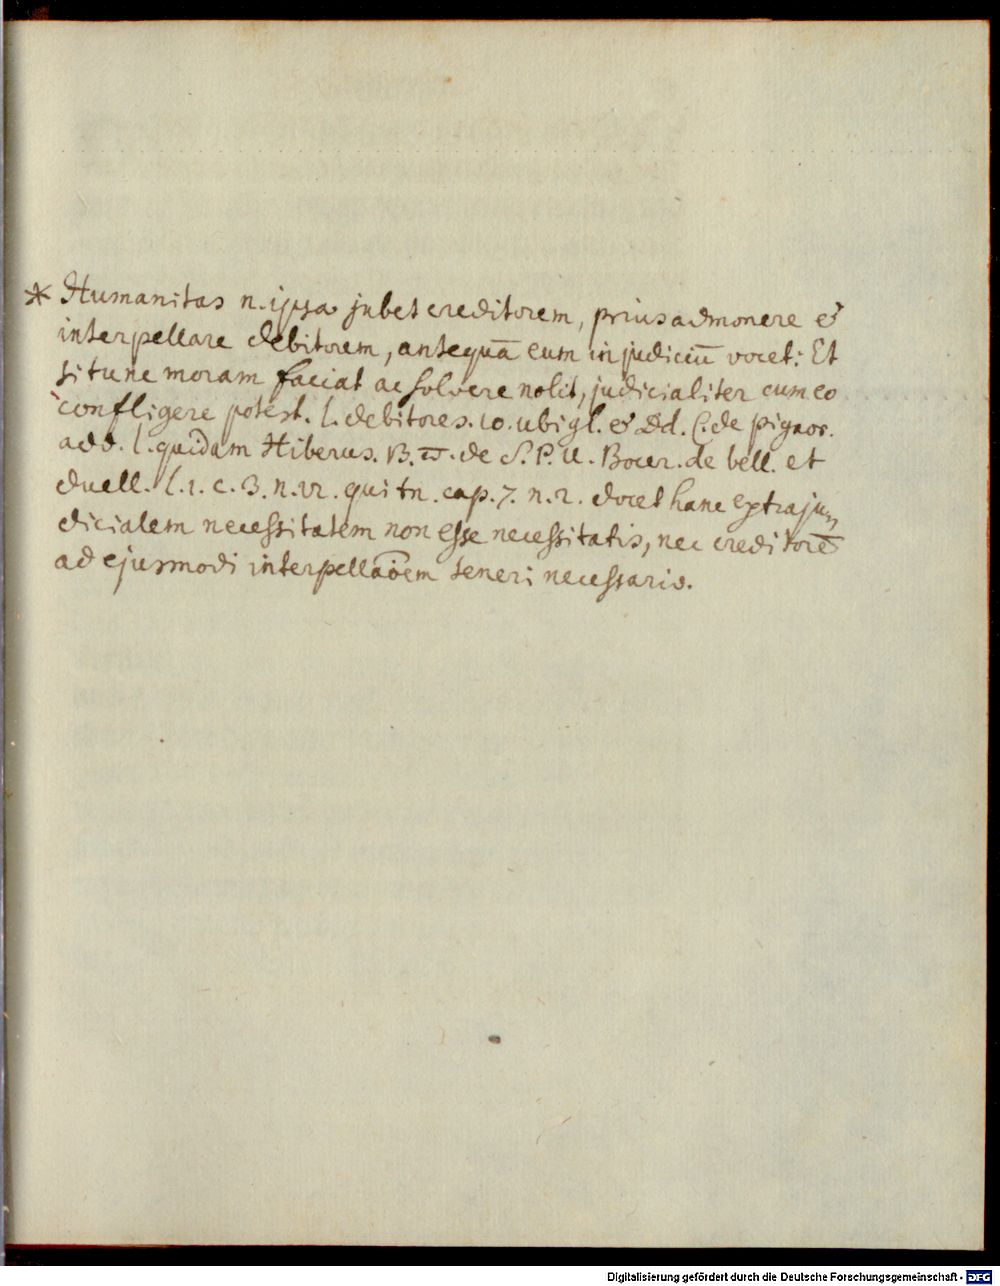 * Humanitas n. ipsa jubet creditorem, prius admonere &
interpellare debitorem, antequā eum in judiciū vocet: Et
si tunc moram faciat ac solvere nolit, judicialiter cum eo
confligere potest. L. debitores. 10. ubi gl. & Dd. C. de pignor.
add. l. quidam Hiberus. 13. π. de S. P. U. Bocer. de bell. et
duell. l. 1. c. 3. n. 12. qui tn. cap. 7. n. 2. docet hanc extraju-
dicialem necessitatem non esse necessitatis, nec creditorē
ad ejusmodi interpellaōem teneri necessario.
Digitalisierung gefördert durch die Deutsche Forschungsgemeinschaft - DFG